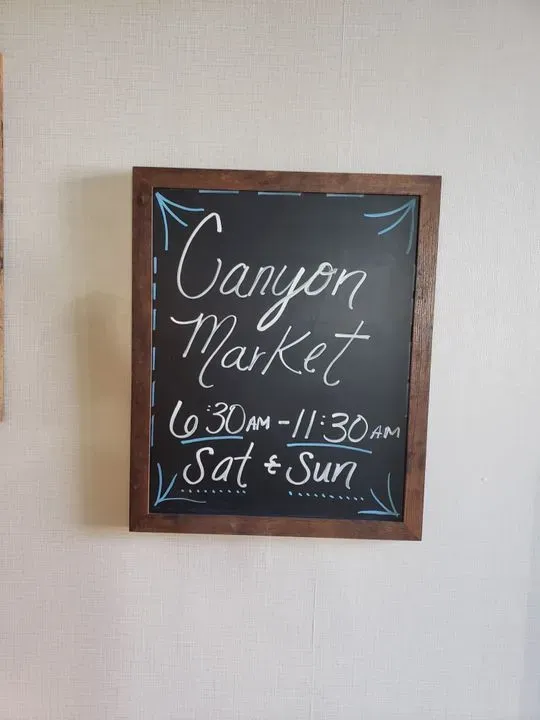 Canyon
Market
6:30AM - 11:30AM
Sat & Sun